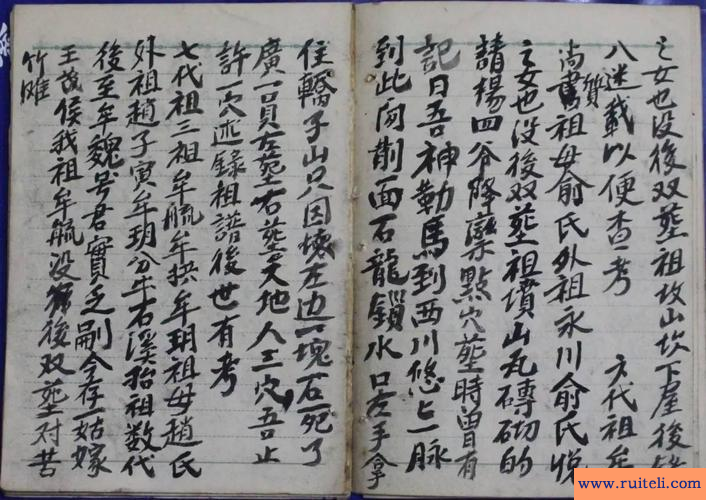 之女也没後双塟祖坟山坎下屋後
八迷載以便查考 六代祖牟
尚質書祖母俞氏外祖永川俞氏悦
之女也没後双塟祖墳山瓦磚砌的
請楊四爷降乩點穴塟時曾有
記曰吾神勒馬到西川悠上一脉
到此向削面石龍鎖水口左手拿
住轎子山只因懷左边一塊石死了
廣一員左塟右塟天地人三穴吾止
許一穴述錄祖譜後世有考
七代祖三祖牟航牟拱牟玥祖母趙氏
外祖趙子寅牟玥分牛石溪抬祖数代
後至牟魏号君實乏嗣今存一姑嫁
王茂侯我祖牟航没後双塟对苦
竹雎
www.ruiteli.com